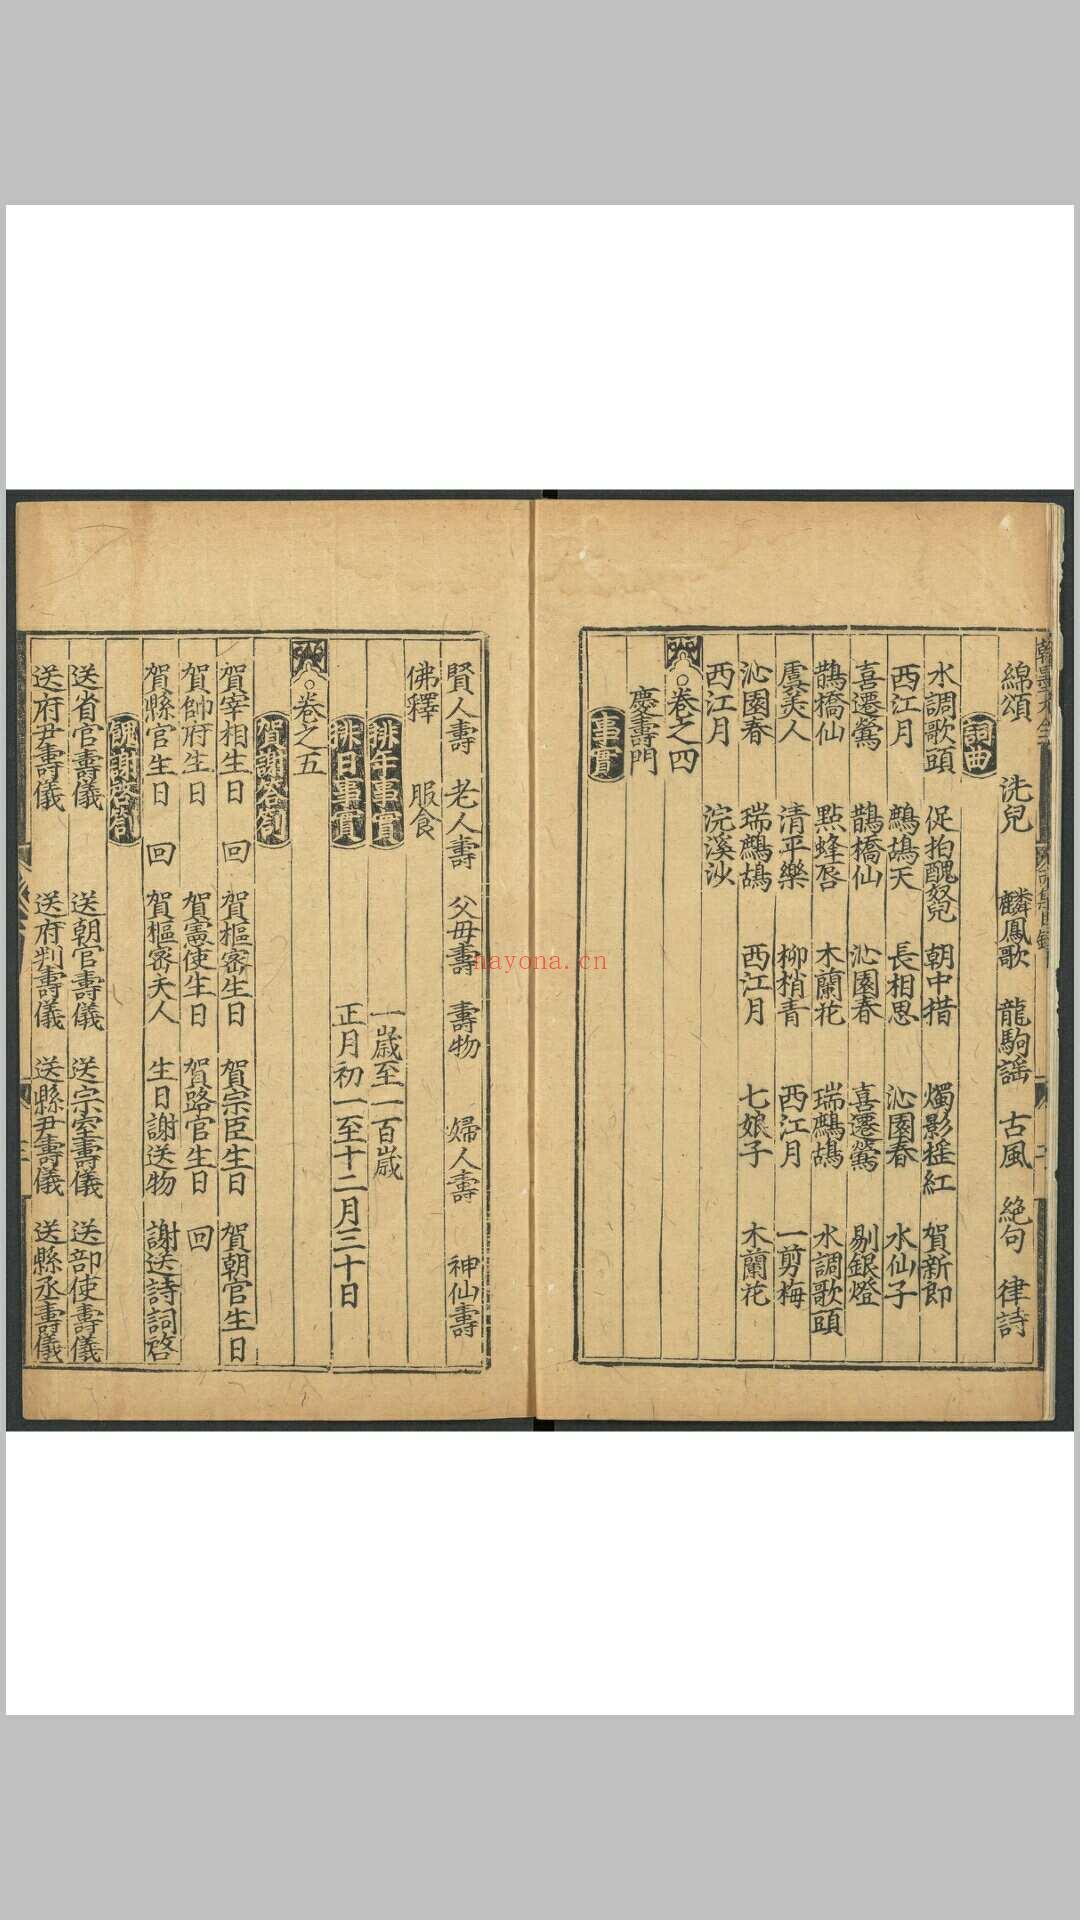 綿頌 洗兒 麟鳳歌 龍駒謡 古風 絕句 律詩
詞曲
水調歌頭 促拍醜奴兒 朝中措 燭影摇紅 賀新郎
西江月 鷓鴣天 長相思 沁園春 水仙子
喜遷鶯 鵲橋仙 沁園春 喜遷鶯 剔銀燈
鵲橋仙 點蜂唇 木蘭花 瑞鷓鴣 水調歌頭
虞美人 清平樂 柳梢青 西江月 一剪梅
沁園春 瑞鷓鴣 西江月 七娘子 木蘭花
西江月 浣溪沙
卷之四
慶壽門
事實
賢人壽 老人壽 父母壽 壽物 婦人壽 神仙壽
佛釋 服食
排年事實 一歲至一百歲
排日事實 正月初一至十二月三十日
卷之五
賀謝啓劄
賀宰相生日 回 賀樞密生日 賀宗臣生日 賀朝官生日
賀帥府生日 賀憲使生日 賀路官生日 回
賀縣官生日 回 賀樞密夫人 生日謝送物 謝送詩詞啓
餽謝啓劄
送省官壽儀 送朝官壽儀 送宗室壽儀 送部使壽儀
送府尹壽儀 送府判壽儀 送縣尹壽儀 送縣丞壽儀
nayona.cn